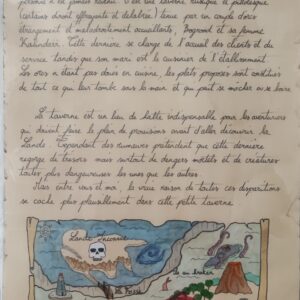 personne n'a jamais revenu. C'est une taverne rustique et pittoresque.
Certains diront effrayante et délabrée. Tenue par un couple d'orcs
étrangement et maladroitement accueillants, Bogromt et sa femme
Kalindari. Cette dernière se charge de l'accueil des clients et du
service tandis que son mari est le cuisinier de l'établissement.
Les orcs n'étant pas doués en cuisine, les plats proposés sont constitués
de tout ce qui leur tombe sous la main et qui peut se mâcher ou se boire.
La taverne est un lieu de halte indispensable pour les aventuriers
qui doivent faire le plein de provisions avant d'aller découvrir la
Lande. Cependant des rumeurs prétendent que cette dernière
regorge de trésors mais surtout de dangers mortels et de créatures
toutes plus dangereuses les unes que les autres.
Mais entre vous et moi, la vraie raison de toutes ces disparitions
se cache plus plausiblement dans cette petite taverne.
Lande Inconnue
Île au kraken
La Fosse